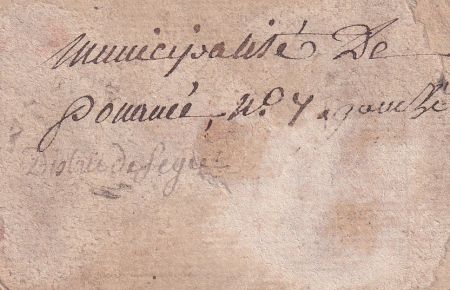 Municipalité De
pouancé, N.º 7
District de Segré